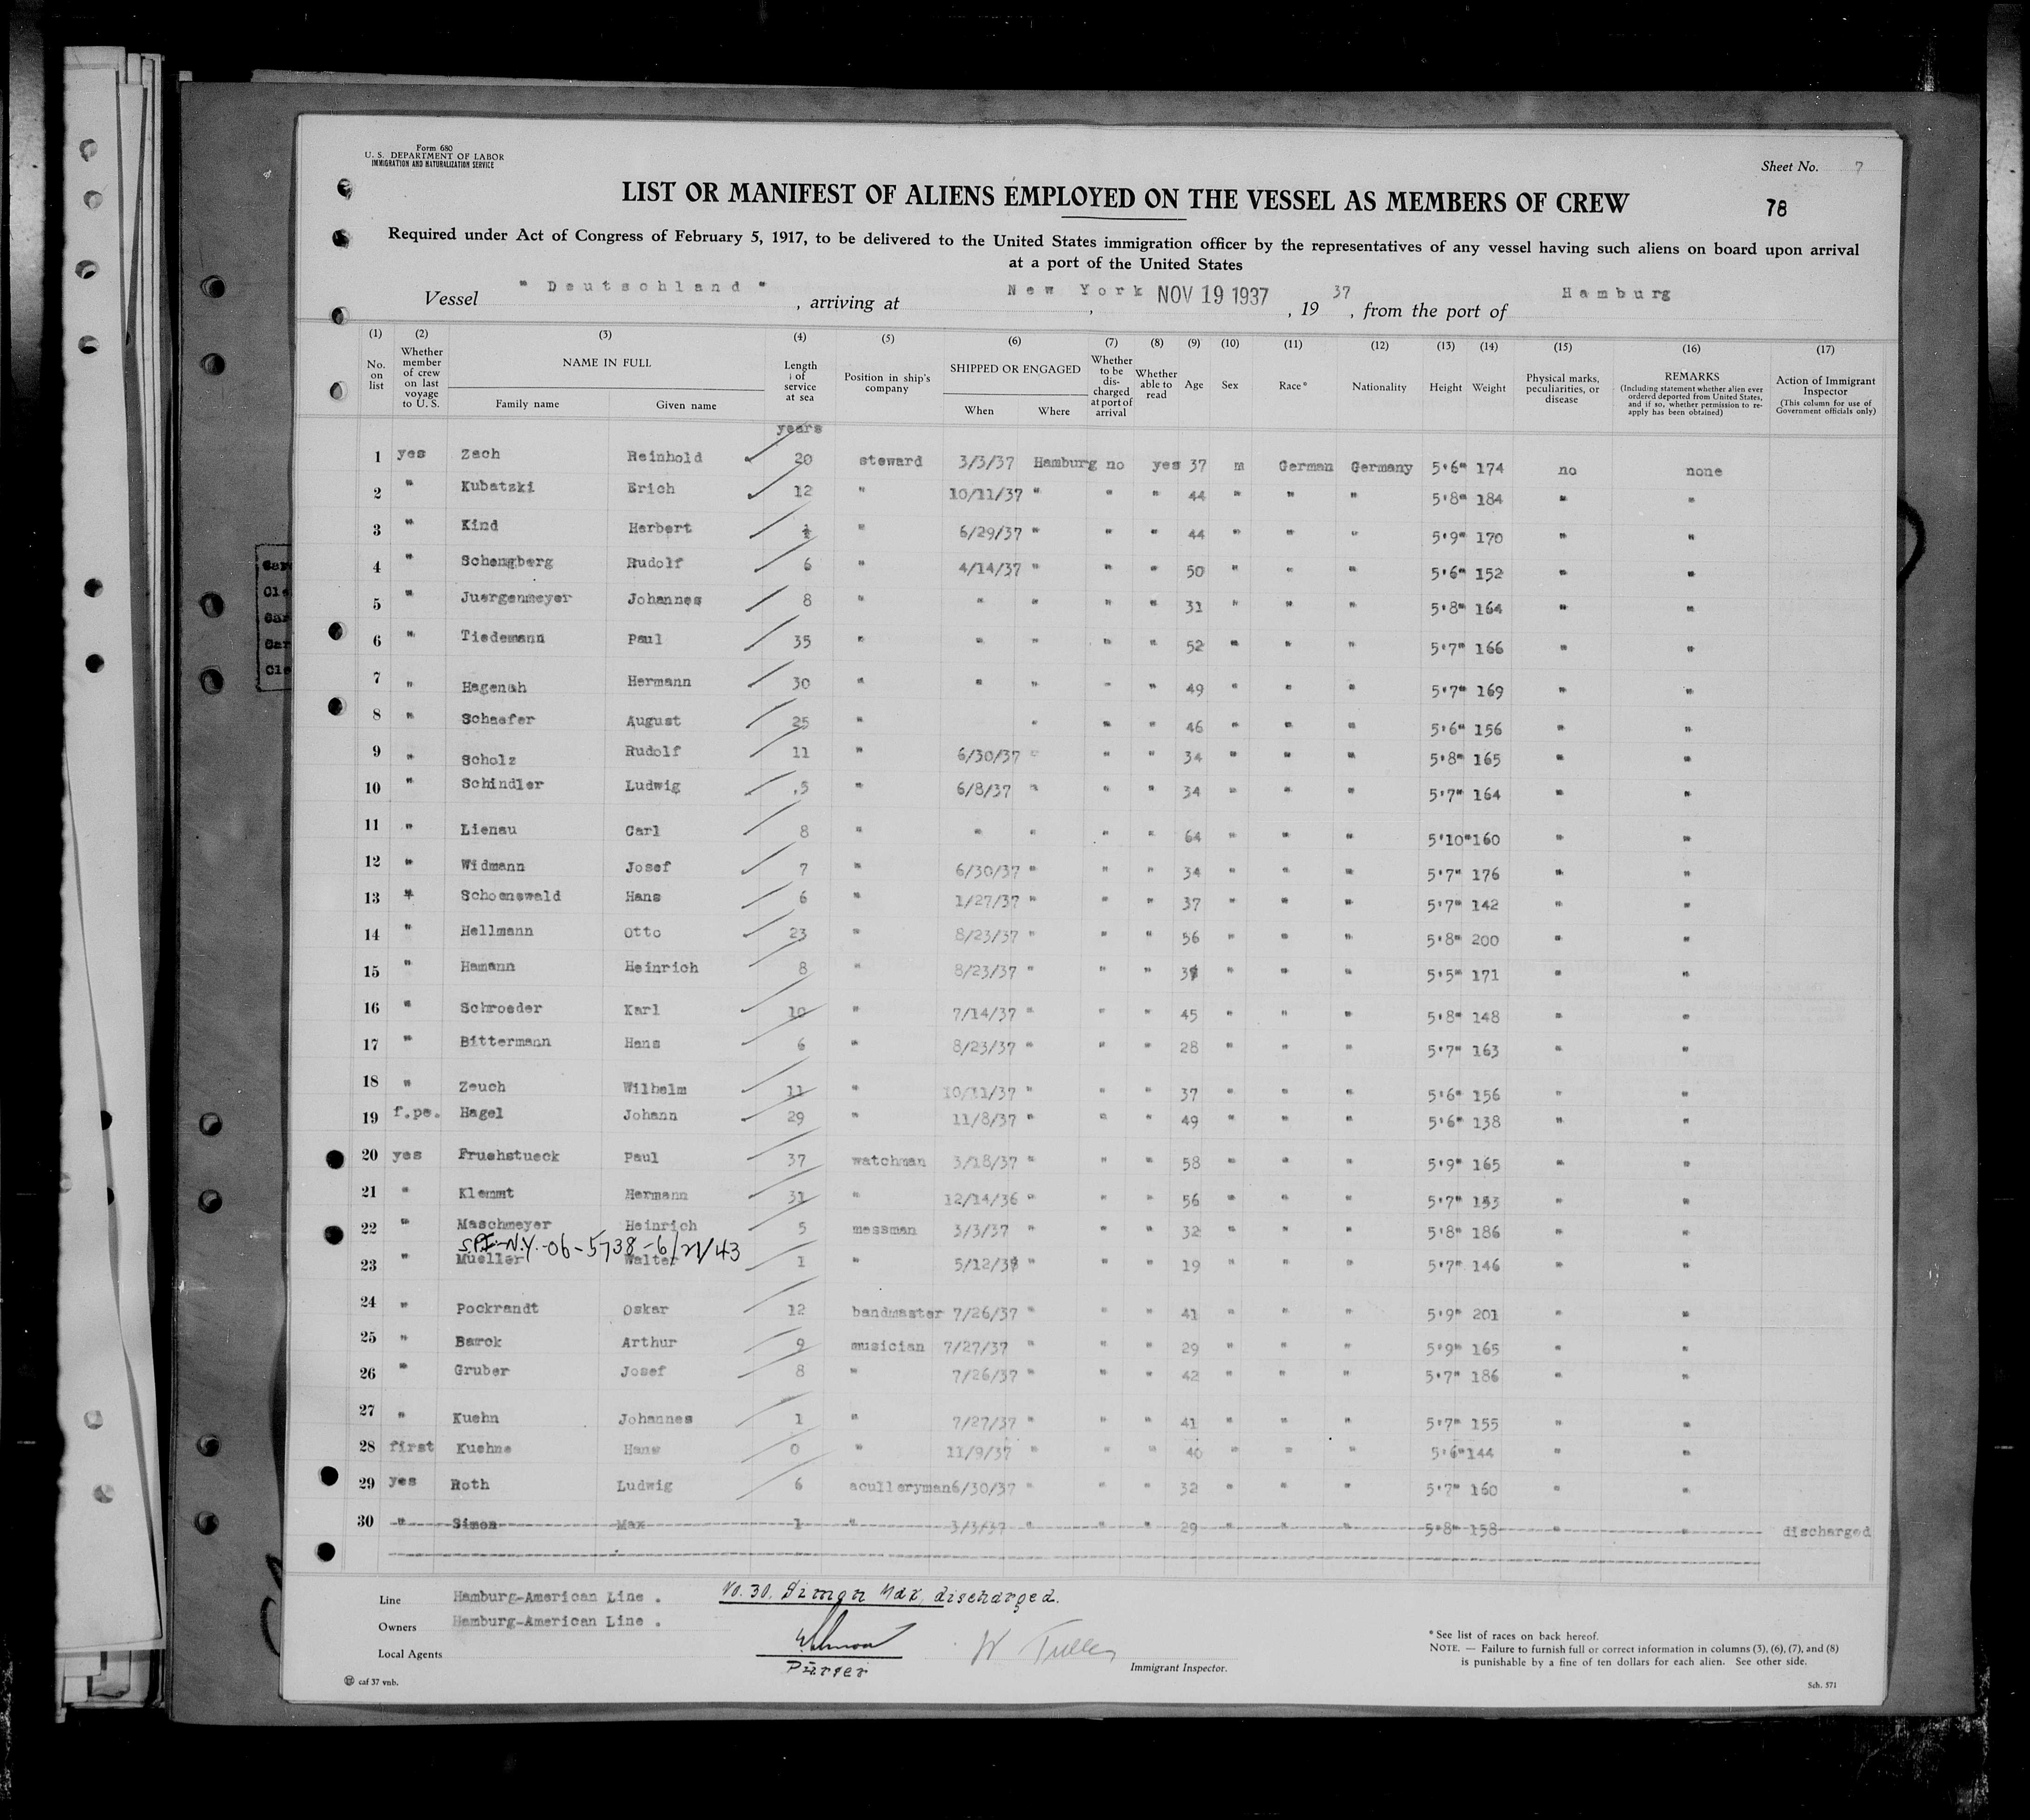 Form 680
U. S. DEPARTMENT OF LABOR
IMMIGRATION AND NATURALIZATION SERVICE
Sheet No. 7
LIST OR MANIFEST OF ALIENS EMPLOYED ON THE VESSEL AS MEMBERS OF CREW
78
Required under Act of Congress of February 5, 1917, to be delivered to the United States immigration officer by the representatives of any vessel having such aliens on board upon arrival
at a port of the United States
Vessel "Deutschland", arriving at New York NOV 19 1937, 19 37, from the port of Hamburg
(1) (2) (3) (4) (5) (6) (7) (8) (9) (10) (11) (12) (13) (14) (15) (16) (17)
No. on list Whether member of crew on last voyage to U. S. NAME IN FULL Family name Given name Length of service at sea Position in ship's company SHIPPED OR ENGAGED When Where Whether to be discharged at port of arrival Whether able to read Age Sex Race* Nationality Height Weight Physical marks, peculiarities, or disease REMARKS (Including statement whether alien ever ordered deported from United States, and if so, whether permission to re-apply has been obtained) Action of Immigrant Inspector (This column for use of Government officials only)
years
1 yes Zech Reinhold 20 steward 3/3/37 Hamburg no yes 37 m German Germany 5'6" 174 no none
2 " Kubatzki Erich 12 " 10/11/37 " " " 44 " " " 5'8" 184 " "
3 " Kind Herbert ½ " 6/29/37 " " " 44 " " " 5'9" 170 " "
4 " Schengberg Rudolf 6 " 4/14/37 " " " 50 " " " 5'6" 152 " "
5 " Juergenmeyer Johannes 8 " " " " " 31 " " " 5'8" 164 " "
6 " Tiedemann Paul 35 " " " " " 52 " " " 5'7" 166 " "
7 " Hagenah Hermann 30 " " " " " 49 " " " 5'7" 169 " "
8 " Schaefer August 25 " " " " 46 " " " 5'6" 156 " "
9 " Scholz Rudolf 11 " 6/30/37 " " " 34 " " " 5'8" 165 " "
10 " Schindler Ludwig .5 " 6/8/37 " " " 34 " " " 5'7" 164 " "
11 " Lienau Carl 8 " " " " " 64 " " " 5'10" 160 " "
12 " Widmann Josef 7 " 6/30/37 " " " 34 " " " 5'7" 176 " "
13 " Schoenswald Hans 6 " 1/27/37 " " " 37 " " " 5'7" 142 " "
14 " Hellmann Otto 23 " 8/23/37 " " " 56 " " " 5'8" 200 " "
15 " Hamann Heinrich 8 " 8/23/37 " " " " " " 5'5" 171 " "
16 " Schroeder Karl 10 " 7/14/37 " " " 45 " " " 5'8" 148 " "
17 " Bittermann Hans 6 " 8/23/37 " " " 28 " " " 5'7" 163 " "
18 " Zeuch Wilhelm 11 " 10/11/37 " " " 37 " " " 5'6" 156 " "
19 f.pe. Hagel Johann 29 " 11/8/37 " " " 49 " " " 5'6" 138 " "
20 yes Fruehstueck Paul 37 watchman 3/18/37 " " " 58 " " " 5'9" 165 " "
21 " Klemmt Hermann 31 " 12/14/36 " " " 56 " " " 5'7" 153 " "
22 " Maschmeyer Heinrich 5 messman 3/3/37 " " " 32 " " " 5'8" 186 " "
S.P.I.-N.Y.-06-5738-6/21/43
23 " Mueller Walter 1 " " " " 19 " " " 5'7" 146 " "
24 " Pockrandt Oskar 12 bandmaster 7/26/37 " " " 41 " " " 5'9" 201 " "
25 " Barck Arthur 9 musician 7/27/37 " " " 29 " " " 5'9" 165 " "
26 " Gruber Josef 8 " 7/26/37 " " " 42 " " " 5'7" 186 " "
27 " Kuehn Johannes 1 " 7/27/37 " " " 41 " " " 5'7" 155 " "
28 first Kuehne Hans 0 " 11/9/37 " " " 40 " " " 5'6" 144 " "
29 yes Roth Ludwig 6 aculleryman 6/30/37 " " " 32 " " " 5'7" 160 " "
30 " Simon Max 1 " 3/3/37 " " " 29 " " " 5'8" 158 " " discharged
Line Hamburg-American Line .
No. 30. Simon Max, discharged.
Owners Hamburg-American Line .
Local Agents
Purser
Immigrant Inspector.
* See list of races on back hereof.
NOTE. — Failure to furnish full or correct information in columns (3), (6), (7), and (8)
is punishable by a fine of ten dollars for each alien. See other side.
caf 37 vnb.
Sch. 571